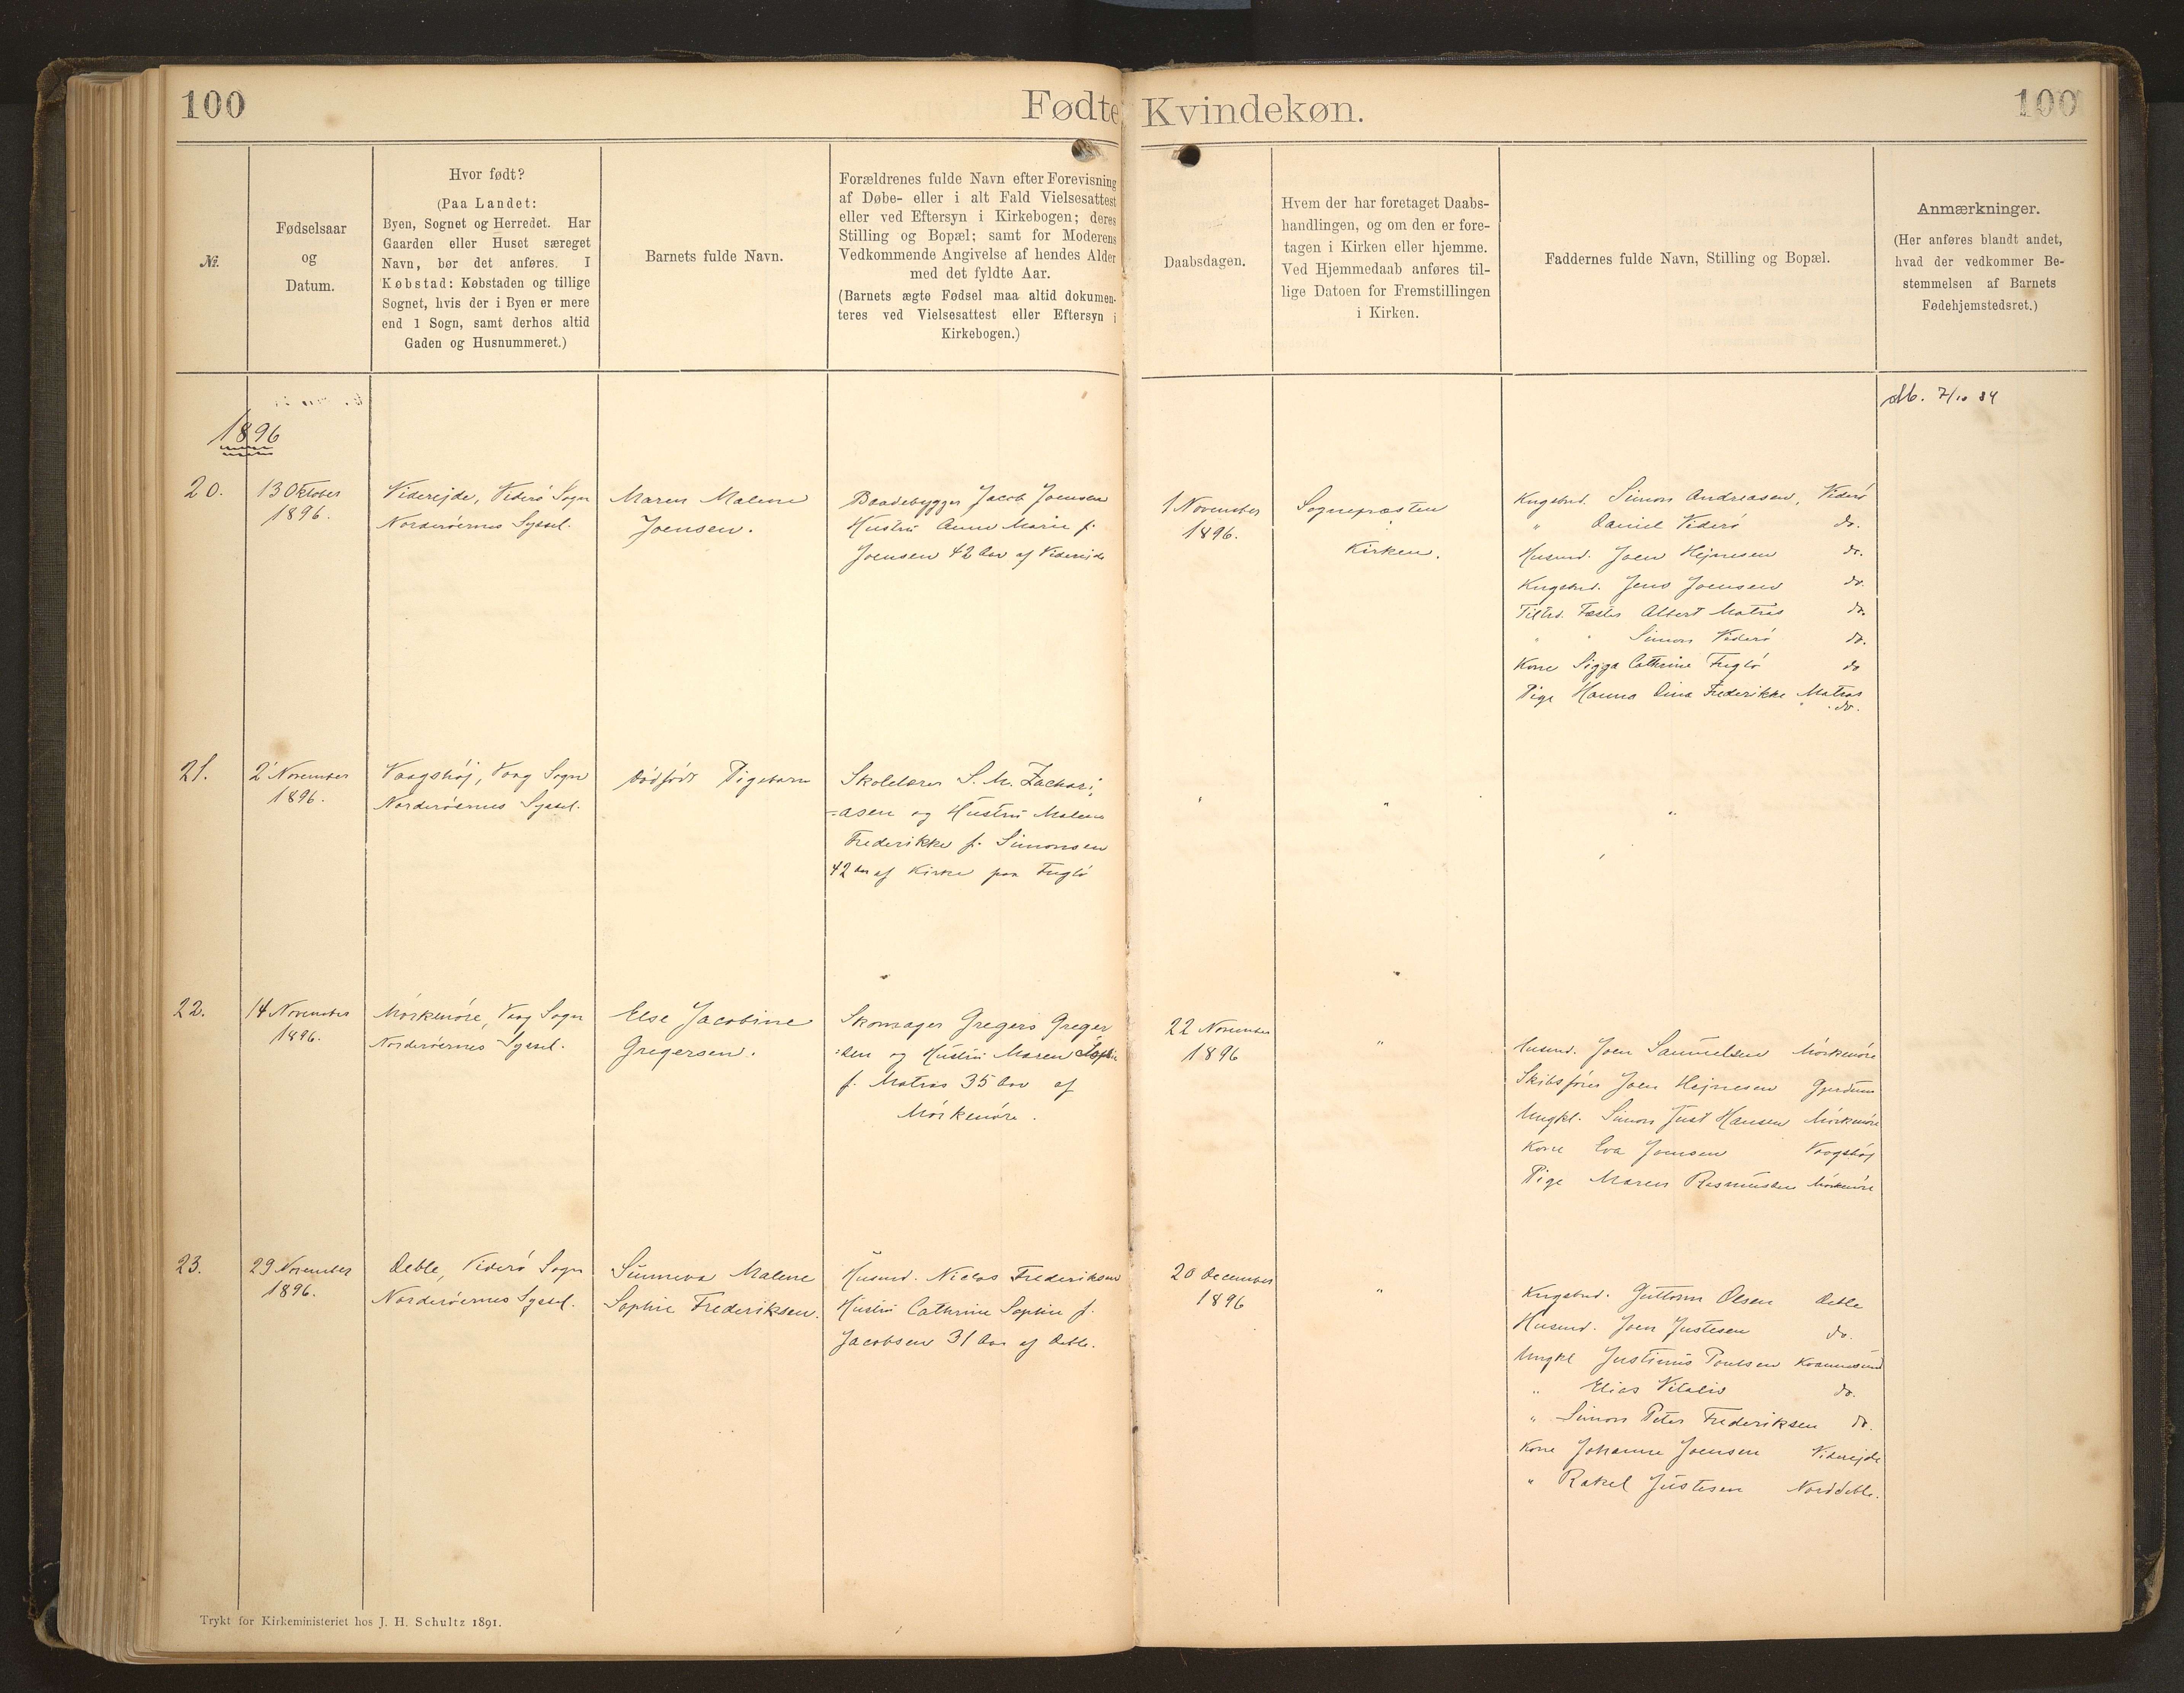 100
Fødte
Kvindekøn.
100
№
Fødselsaar
og
Datum.
Hvor født?
(Paa Landet:
Byen, Sognet og Herredet. Har
Gaarden eller Huset særeget
Navn, bør det anføres. I
Købstad: Købstaden og tillige
Sognet, hvis der i Byen er mere
end 1 Sogn, samt derhos altid
Gaden og Husnummeret.)
Barnets fulde Navn.
Forældrenes fulde Navn efter Forevisning
af Døbe- eller i alt Fald Vielsesattest
eller ved Eftersyn i Kirkebogen; deres
Stilling og Bopæl; samt for Moderens
Vedkommende Angivelse af hendes Alder
med det fyldte Aar.
(Barnets ægte Fødsel maa altid dokumen-
teres ved Vielsesattest eller Eftersyn i
Kirkebogen.)
Daabsdagen.
Hvem der har foretaget Daabs-
handlingen, og om den er fore-
tagen i Kirken eller hjemme.
Ved Hjemmedaab anføres til-
lige Datoen for Fremstillingen
i Kirken.
Faddernes fulde Navn, Stilling og Bopæl.
Anmærkninger.
(Her anføres blandt andet,
hvad der vedkommer Be-
stemmelsen af Barnets
Fødehjemstedsret.)
7/10 84
1896
20.
13 Oktober
1896.
Viderejde, Viderö Sogn
Norderöernes Syssel.
Maren Malene
Joensen.
Baadebygger Jacob Joensen
Hustru Anne Marie f.
Joensen 42 Aar af Viderejde
1 November
1896.
Sognepræsten
Kirken.
Kngsbnd. Simon Andreasen, Viderö
" Daniel Viderö do.
Husmd. Joen Hejnesen do.
Kngsbnd. Jens Joensen do.
Fæster Albert Matras do.
" " Simon Viderö do.
Kone Sigga Cathrine Fuglö do
Pige Hanna Dina Frederikke Matras
do.
21.
2 November
1896.
Vaagshöj, Vaag Sogn
Norderöernes Syssel.
Dödfödt Pigebarn
Skolelærer S. M. Zachari-
-asen og Hustru Malene
Frederikke f. Simonsen
42 Aar af Kirke paa Fuglö
"
"
"
22.
14 November
1896.
Mörkenöre, Vaag Sogn
Norderöernes Syssel.
Else Jacobine
Gregersen.
Skomager Gregers Greger
:sen og Hustru Maren Sophie
f. Matras 35 Aar af
Mörkenöre.
22 November
1896
"
Husmd. Joen Samuelsen Mörkenöre
Skibsförer Joen Hejnesen Gjerdum
Ungkl. Simon Just Hansen Mörkenöre
Kone Eva Joensen Vaagshöj
Pige Maren Rasmussen Mörkenöre
23.
29 November
1896.
Deble, Viderö Sogn
Norderöernes Syssel.
Sunneva Malene
Sophie Frederiksen.
Husmd. Niclas Frederiksen
Hustru Cathrine Sophie f.
Jacobsen 31 Aar af Deble.
20 December
1896
"
Kngsbnd. Guttorm Olsen Deble
Husmd. Joen Justesen do.
Ungkl Justinus Poulsen Kvannesund
" Elias Vitalis do.
" Simon Peter Frederiksen do.
Kone Johanne Joensen Viderejde
" Rakel Justesen Norddeble.
Trykt for Kirkeministeriet hos J. H. Schultz 1891.